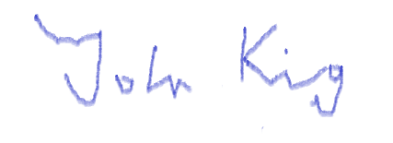 John King